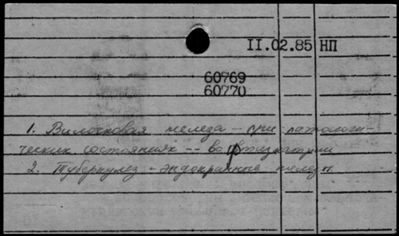 II.02.85 НП
60769
60770
1. Вилочковая железа - при патологи-
ческих состояниях -- во фтизиатрии
2. Туберкулез - эндокринные железы